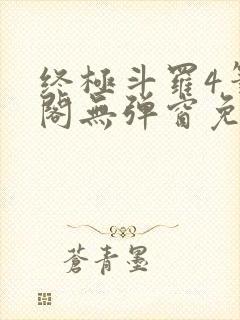 终極斗羅4筆
閣無弹窗免
蒼青墨